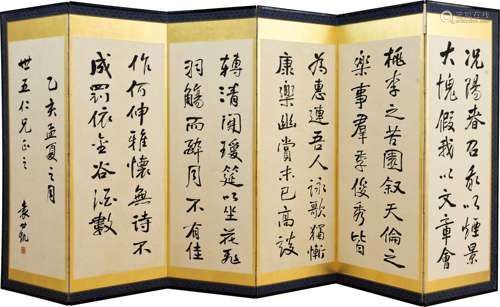 况陽春召我以煙景
大塊假我以文章會
桃李之芳園叙天倫之
樂事群季俊秀皆
為惠連吾人詠歌獨慚
康樂幽賞未已高談
轉清開瓊筵以坐花飛
羽觴而醉月不有佳
作何伸雅懷無詩不
成罰依金谷酒數
乙亥孟夏之月
世五仁兄正之
袁世凱